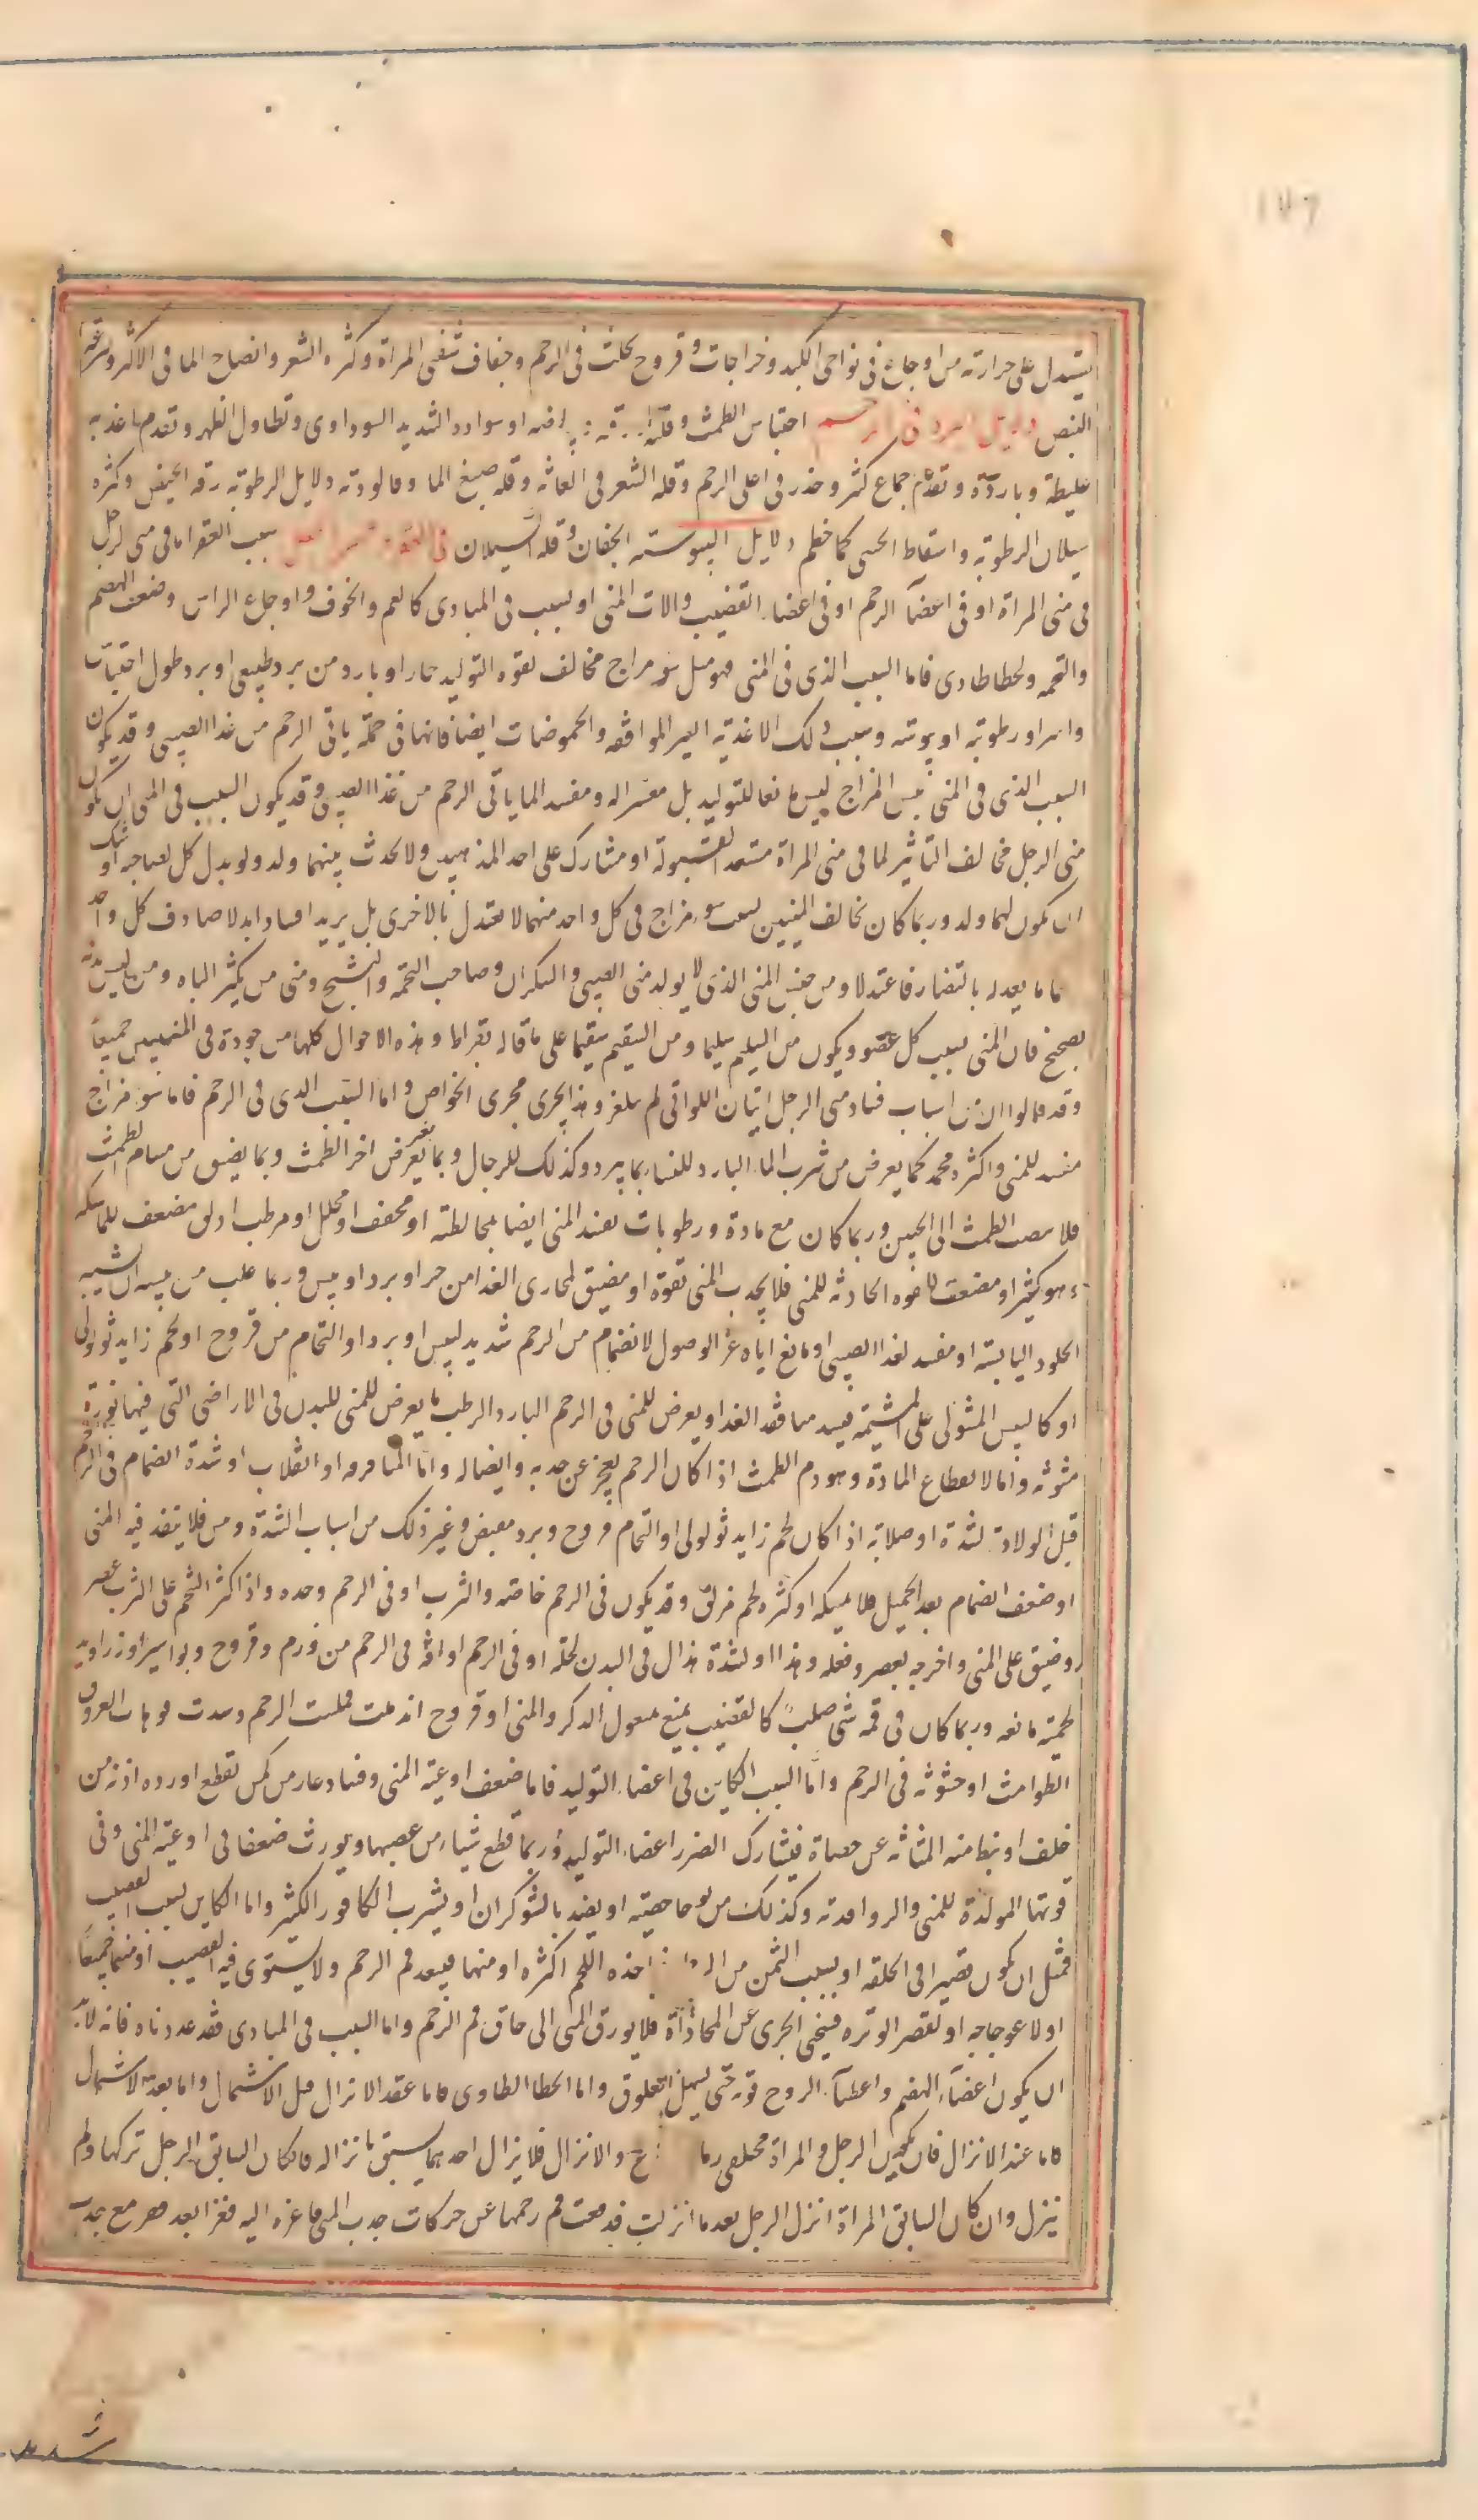 يستدل على حرارته من اوجاع فى نواحى الكبد وخراجات وقروح تحدث فى الرحم وجفاف شفتى المراة وكثره الشعر وانصباح الما فى الاكثر وسرعة
النبض دلايل البرد فى الرحم احتباس الطمث وقلته او سواده الشديد السوداوى وتطاول الطهر وتقدم اغذيه
غليظة وباردة وتقدم جماع كثير وخدر فى اعلى الرحم وقله الشعر فى العانه وقله صبغ الما وفساد لونه دلايل الرطوبه رقه الحيض وكثره
سيلان الرطوبه واسقاط الجنين كما يعظم دلايل اليبوسه الجفاف وقله السيلان فى العقر وعسر الحبل سبب العقر اما فى منى الرجل
فى منى المراة او فى اعضآ الرحم او فى اعضاء القضيب والات المنى او لسبب فى المبادى كالغم والخوف واوجاع الراس وضعف الهضم
والتخمه ولخطا طارى فاما السبب الذى فى المنى فهو مثل سو مزاج مخالف لقوه التوليد حار او بارد من برد طبيعى او برد طول احتباس
واسر او رطوبه او يبوسه وسبب ذلك الاغذيه الغير الموافقه والحموضات ايضا فانها فى جملة ياتى الرحم من غذا الصبى وقد يكون
السبب الذى فى المنى يبس المزاج ليس مانعا للتوليد بل معسرا له ومفسد لما ياتى الرحم من غذا الصبى وقد يكون السبب فى المنى ان يكون
منى الرجل مخالف التاثير لما فى منى المراة مستعد لقبوله او مشارك على احد المذهبين ولا يحدث بينهما ولد ولو بدل كل لصاحبه اوشك
ان يكون لهما ولد وربما كان تخالف المنيين لسبب سوء مزاج فى كل واحد منهما لا يعتدل بالاخرى بل يزيد افسادا بدلا صادف كل واحد
ما يعدله بالتضاد فاعتدلا ومن جنس المنى الذى لا يولد منى الصبى والسكران وصاحب التخمه والشيخ ومنى من يكثر الباه ومن ليس بدنه
بصحيح فان المنى يسبب كل عضو ويكون من السليم سليما ومن السقيم سقيما على ما قاله بقراط وهذه الاحوال كلها موجودة فى المنيين جميعا
وقد قالوا ان من اسباب فساد منى الرجل اتيان اللواتى لم يبلغن وهذا يجرى مجرى الخواص واما السبب الذى فى الرحم فاما سو مزاج
مفسد للمنى واكثره مجمد كما يعرض من شرب الماء البارد للنساء بما يبرد وكذلك للرجال وبما يعرض اخر الطمث وبما يضيق من مسام الطمث
فلا يصب الطمث الى الجنين وربما كان مع مادة ورطوبات تفسد المنى ايضا بمخالطته او مجفف او محلل او مرطب ادلق مضعف للماسكه
وهو كثير او مضعف للقوه الجاذبه للمنى فلا يجذب المنى بقوة او مضيق لمجارى الغذا من حر او برد او يبس وربما غلب من يبسه ان يشبه
الجلود اليابسة او مفسد لغذا الصبى او مانع اياه عن الوصول لانضمام من الرحم شديد ليبس او برد او التحام من قروح او لحم زايد ثولولى
او كاليبس المستولى على المشيمه فيسد منافذ الغذا ويعرض للمنى فى الرحم البارد الرطب ما يعرض للمنى للبدن فى الاراضى التى فيها نورة
مثوثه واما لانقطاع المادة وهو دم الطمث اذا كان الرحم يعجز عن جذبه وايصاله واما او انقلاب او شدة انضمام فى الرحم
قبل الولادة لشدة او صلابة اذا كان لحم زايد ثولولى او التحام قروح وبرد مقبض وغير ذلك من اسباب السدة ومن فلا ينفذ فيه المنى
او ضعف انضمام بعد الحبل فلا يمسكه او كثره لحم مزلق وقد يكون فى الرحم خاصه والثرب او فى الرحم وحده واذا كثر الشحم على الثرب عصر
وضيق على المنى واخرجه بعصره وفعله وهذا او لشدة هزال فى البدن كله او فى الرحم او افه فى الرحم من ورم وقروح وبواسير او زوايد
لحميه مانعه وربما كان فى فمه شى صلب كالقضيب يمنع دخول الذكر والمنى او قروح اندملت فملست الرحم وسدت فوهات العروق
الطوامث او خشونه فى الرحم واما السبب الكاين فى اعضاء التوليد فاما ضعف اوعيه المنى وفساد عارض لمن تقطع اورده اذنه من
خلف او تبط منه المثانه عن حصاة فيشارك الضرر اعضاء التوليد وربما قطع شياء من عصبها ويورث ضعفا فى اوعيه المنى وفى
قوتها المولدة للمنى والزراقه وكذلك من يوجا خصيته او يضمد بالشوكران او يشرب الكافور الكثير واما الكاين لسبب القضيب
فمثل ان يكون قصيرا فى الخلقه او لسبب السمن من الرجل ياخذه اللحم اكثره او منها فيبعد فم الرحم ولا يستوى فيه القضيب او منهما جميعا
او لاعوجاجه او لقصر الوتره فينحى المجرى عن المحاذاة فلا يورق المنى الى حاق فم الرحم واما السبب فى المبادى فقد عددناه فانه لابد
ان يكون اعضآء الهضم واعضآء الروح قويه حتى يسهل العلوق واما الخطا الطارى فاما عند الانزال قبل الاشتمال واما بعد الاشتمال
فاما عند الانزال فان يكون الرجل والمراة مختلفى زمان والانزال فلا يزال احدهما يسبق بانزاله فان كان السابق الرجل تركها ولم
تنزل وان كان السابق المراة انزل الرجل بعدما انزلت فوقفت فم رحمها عن حركات جذب المنى فاغره اليه فغرا بعد فغر مع جذب